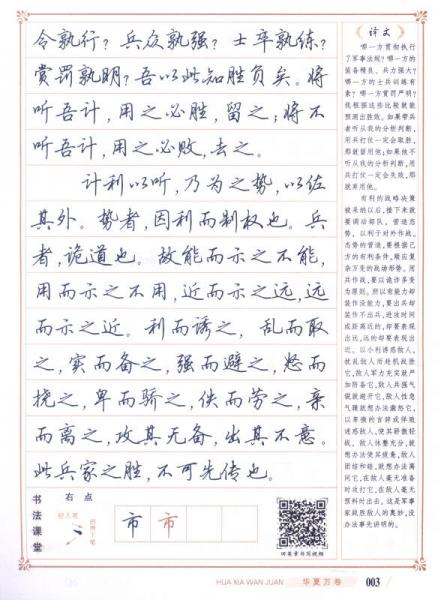 令孰行？兵众孰强？士卒孰练？
赏罚孰明？吾以此知胜负矣。将
听吾计，用之必胜，留之；将不
听吾计，用之必败，去之。
计利以听，乃为之势，以佐
其外。势者，因利而制权也。兵
者，诡道也。故能而示之不能，
用而示之不用，近而示之远，远
而示之近。利而诱之，乱而取
之，实而备之，强而避之，怒而
挠之，卑而骄之，佚而劳之，亲
而离之，攻其无备，出其不意。
此兵家之胜，不可先传也。
译文
哪一方贯彻执行
了军事法规？哪一方的
装备精良、兵力强大？
哪一方的士兵训练有
素？哪一方赏罚严明？
我根据这些比较就能
预测出胜败。如果带兵
者听从我的分析判断，
用兵打仗一定会取胜，
那就留用他；如果他不
听从我的分析判断，用
兵打仗一定会失败，那
就弃用他。
有利的战略决策
被采纳以后，接下来就
要调动部队，营造态
势，以利于对外作战。
态势的营造，要根据己
方的有利条件，顺应复
杂万变的战场形势。用
兵作战，要以诡诈多变
为原则。所以有能力却
装作没能力，要出兵却
装作不出兵，进攻时间
或距离近的，却要表现
出远，远的却要表现出
近。以小利诱惑敌人，
扰乱敌人后趁机战胜
它，敌人军力充实就严
加防备它，敌人兵强气
锐就避开它，敌人性急
气躁就想办法激怒它，
以卑微的言辞或佯败
迷惑敌人，使其骄傲轻
战，敌人休整充分，就
想办法使其疲惫，敌人
团结和睦，就想办法离
间它，在敌人毫无准备
时攻打它，在敌人毫无
预料时出击。这是军事
家战胜敌人的奥妙，没
办法事先讲明的。
书法课堂
右点
轻入笔
市 市
田英章书写视频
HUA XIA WAN JUAN 华夏万卷 003